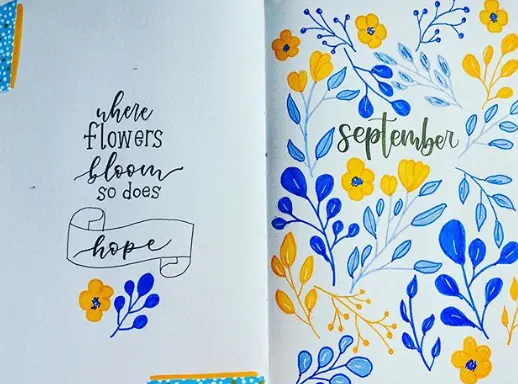 where
flowers
bloom
so does
hope
september